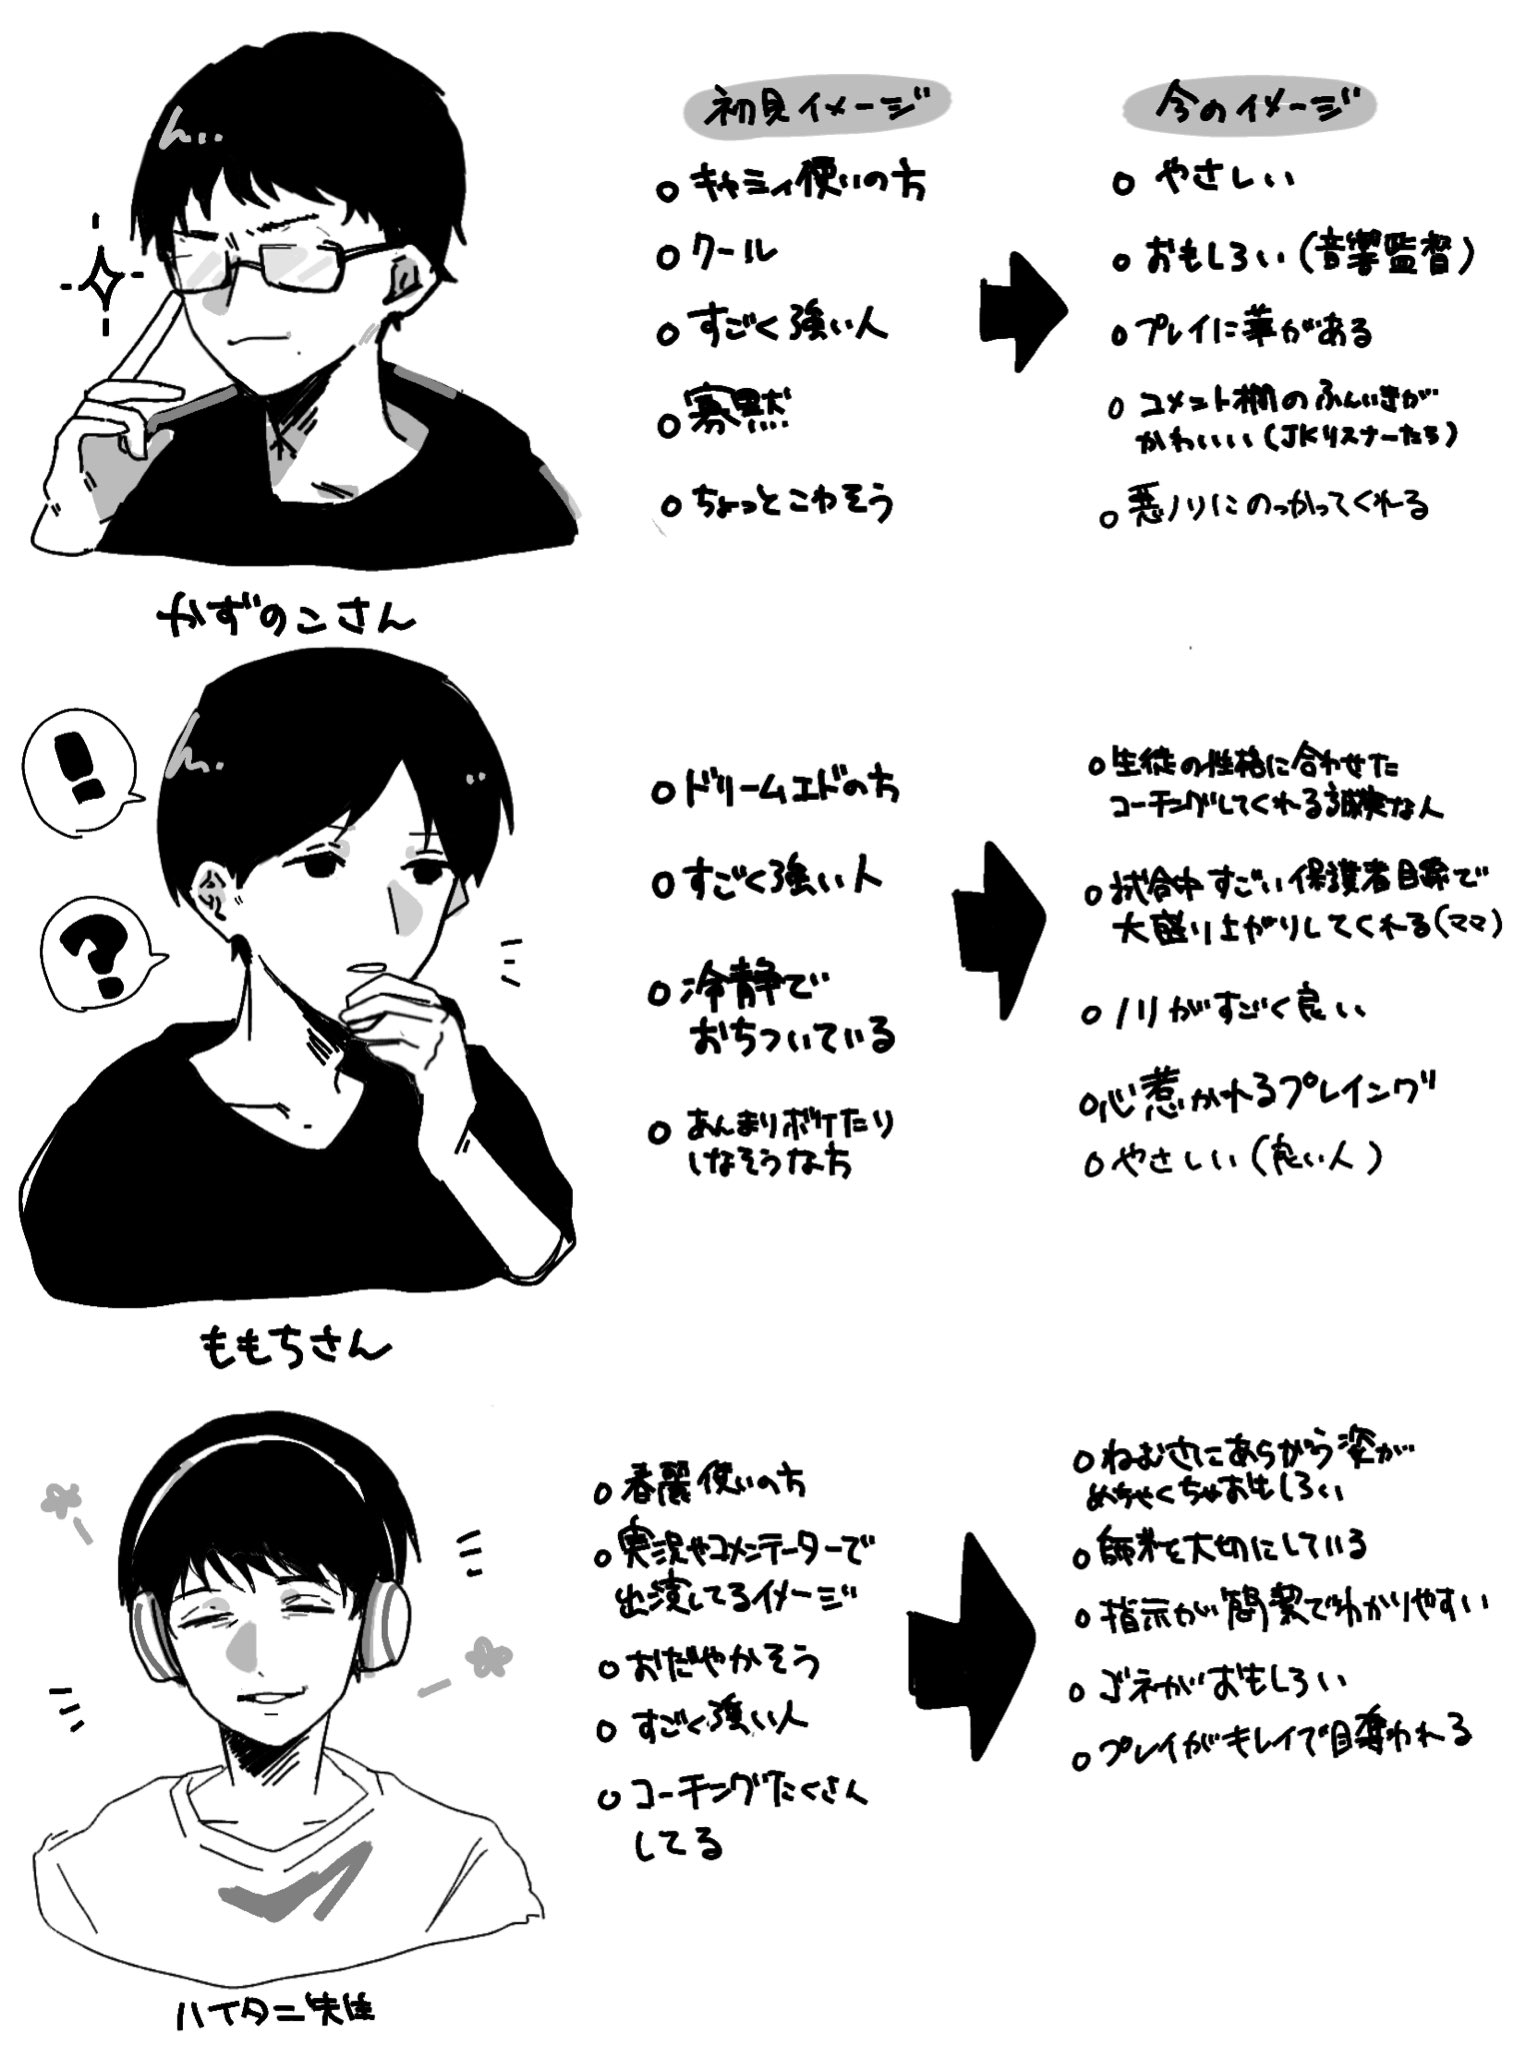 初見イメージ
今のイメージ
キャミィ使いの方
クール
すごく強い人
寡黙
ちょっとこわそう
やさしい
おもしろい(音楽監督)
プレイに華がある
コメント欄のふんいきが
かわいい(JKリスナーたち)
悪ノリにのっかってくれる
かずのこさん
!
?
ドリームエドの方
すごく強い人
冷静で
おちついている
あんまりボケたり
しなそうな方
生徒の性格に合わせた
コーチングしてくれる誠実な人
試合中すごい保護者目線で
大盛り上がりしてくれる(ママ)
ノリがすごく良い
心惹かれるプレイング
やさしい(良い人)
ももちさん
春麗使いの方
実況やコメンテーターで
出演してるイメージ
おだやかそう
すごく強い人
コーチングたくさん
してる
ねむさにあらがう姿が
めちゃくちゃおもしろい
師弟を大切にしている
指示が簡潔でわかりやすい
ゴネがおもしろい
プレイがキレイで目奪われる
ハイタニ先生